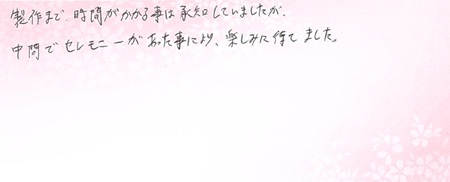 製作まで、時間がかかる事は承知していましたが、
中間でセレモニーがあった事により、楽しみに待てました。